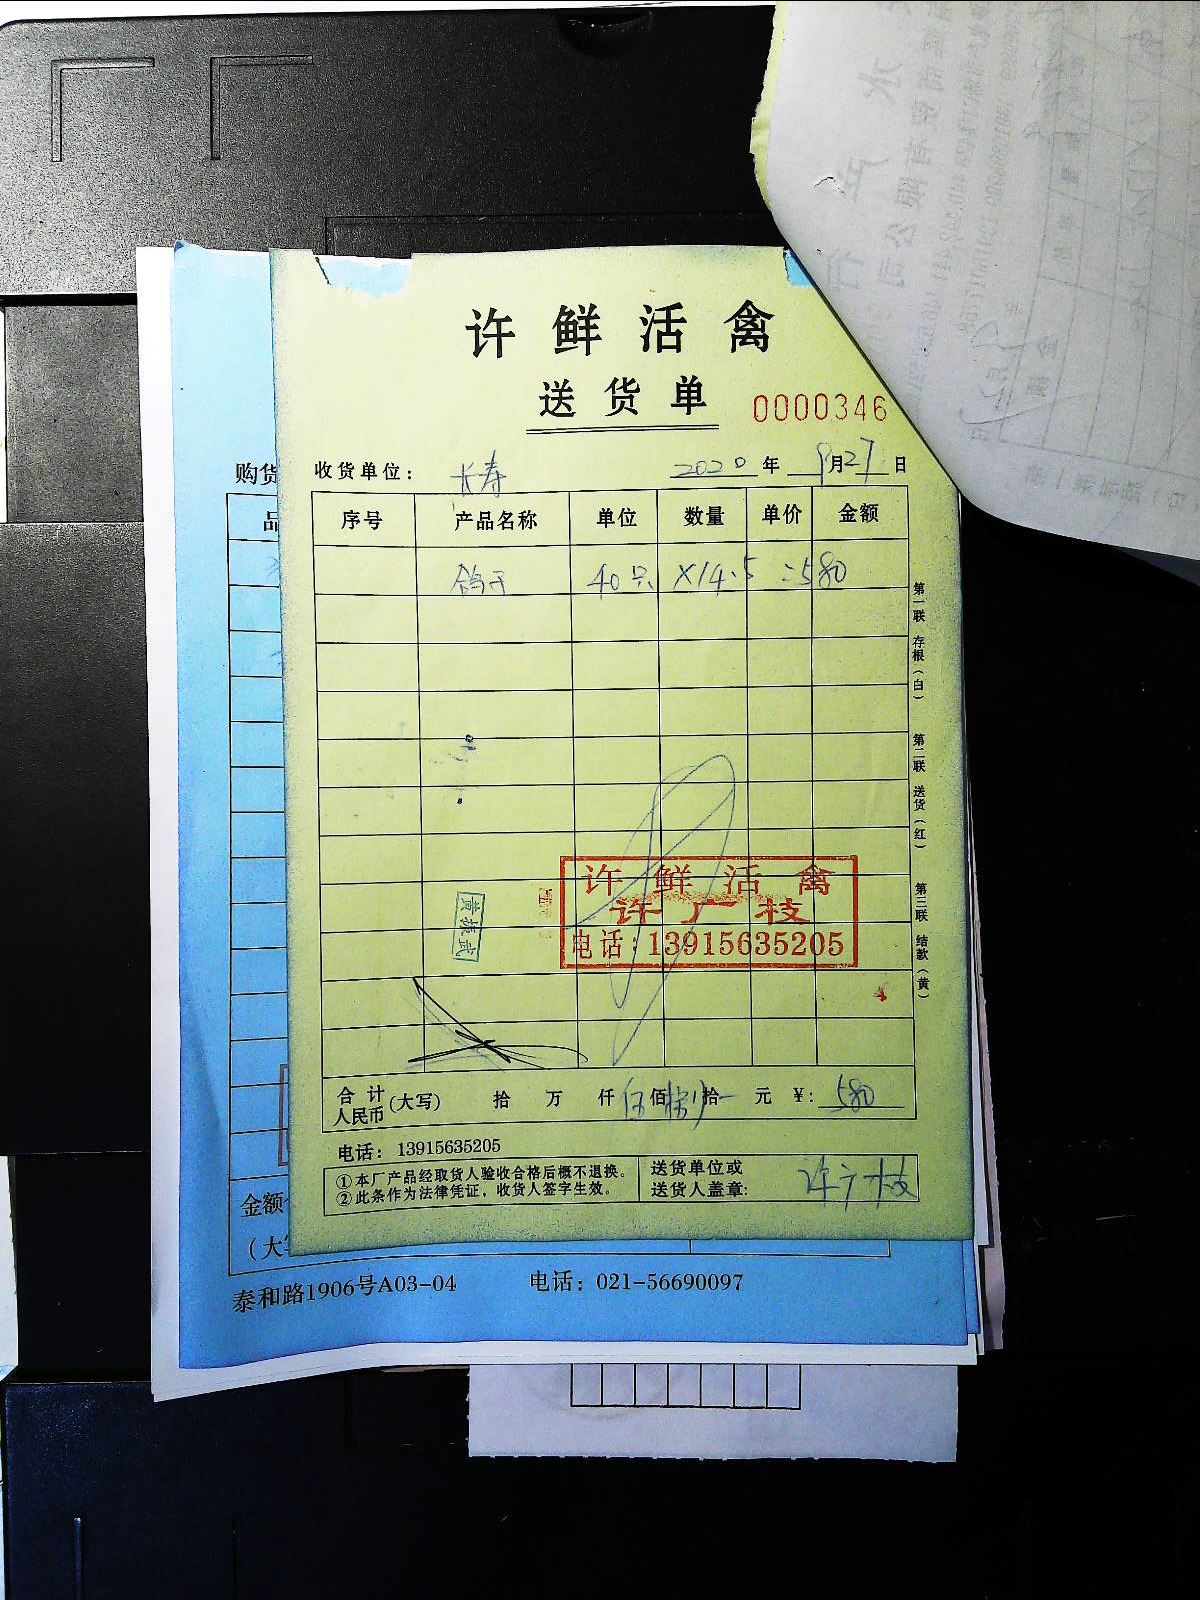 许鲜活禽
送货单
0000346
购货
收货单位：长寿 2020年9月27日
品
序号 产品名称 单位 数量 单价 金额
鸽子 40只 ×14.5 =580
第一联 存根（白） 第二联 送货（红） 第三联 结款（黄）
许鲜活禽
许广枝
电话：13915635205
黄振武
合计人民币(大写) 拾 万 仟 伍佰捌拾 元 ¥:580
电话：13915635205
①本厂产品经取货人验收合格后概不退换。
②此条作为法律凭证，收货人签字生效。
送货单位或
送货人盖章: 许广枝
金额
（大写
泰和路1906号A03-04 电话：021-56690097